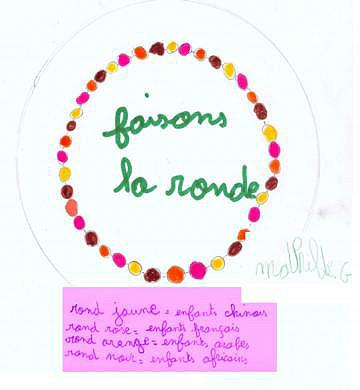 faisons
la ronde
Mathilde.G
rond jaune = enfants chinois
rond rose = enfants français
rond orange = enfants arabes
rond noir = enfants africains